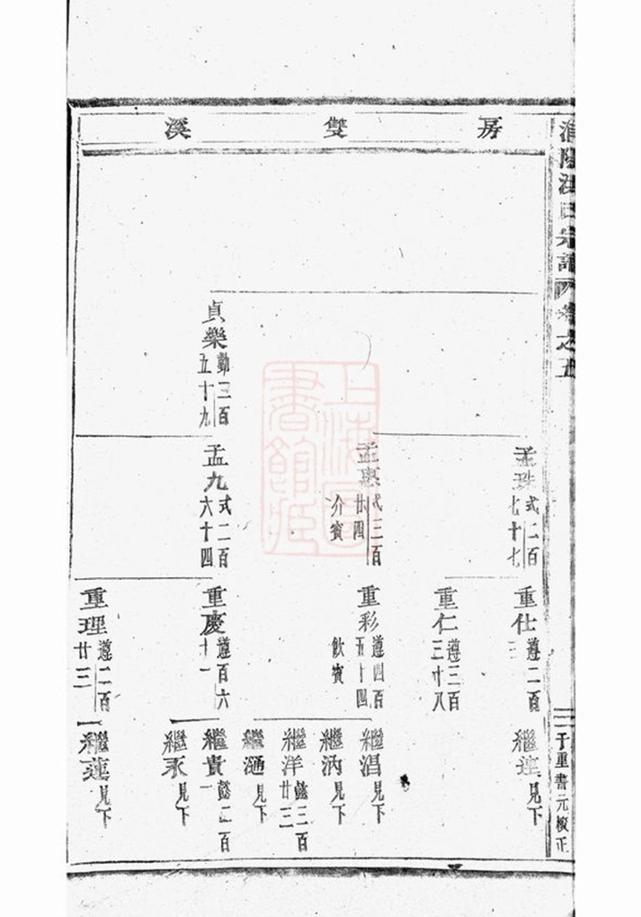 房雙溪
氏宗譜 卷之五
貞樂 勤三百五十九
孟珠 式二百七十七
孟惠 式三百廿四 介賓
孟九 式二百六十四
重仕 遵二百三
重仁 遵三百三十八
重彩 遵四百五十四 飲賓
重慶 遵百六十一
重理 遵二百廿三
繼璉 見下
繼淐 見下
繼汭 見下
繼洋 懿三百廿三
繼 見下
繼貴 懿二百一
繼永 見下
繼蓮 見下
一 于重書元校正
上海圖書館藏